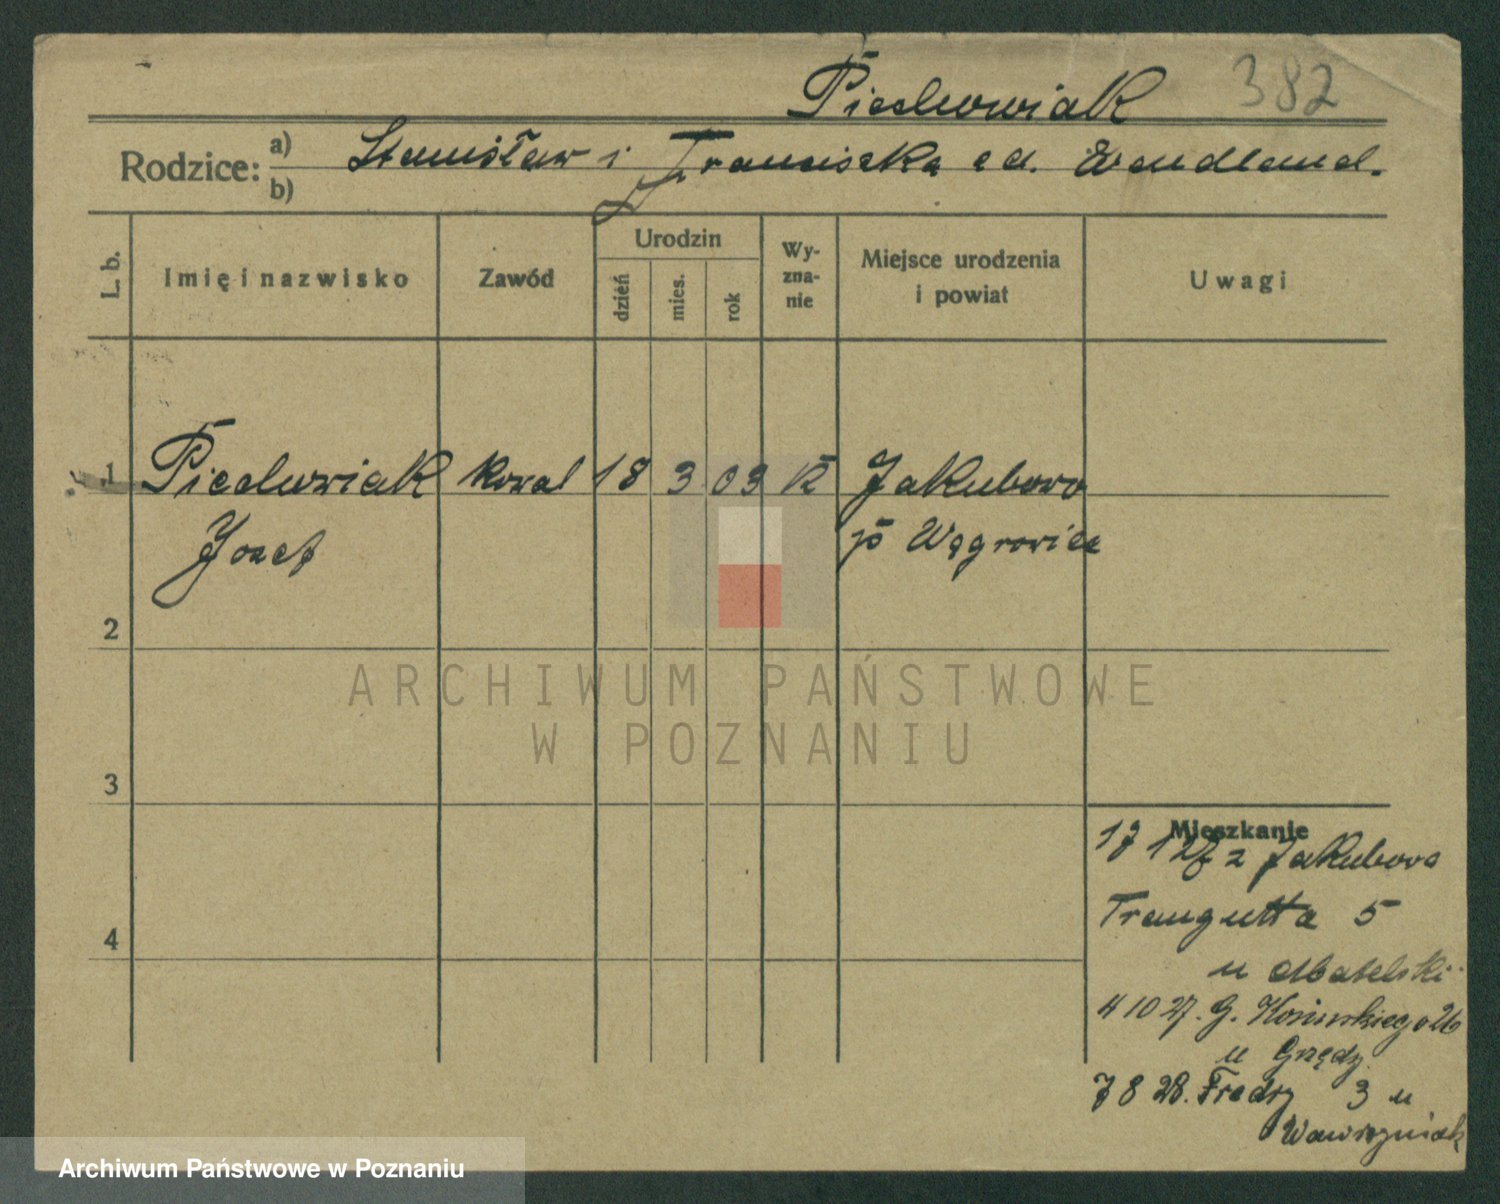 Piechowiak 382
Rodzice: a) Stanisław i Franciszka
b)
L. b. Imię i nazwisko Zawód Urodzin dzień mies. rok Wy-zna-nie Miejsce urodzenia i powiat Uwagi
1 Piechowiak kowal 18 3 03 K Jakubowo
Józef p Wągrowiec
2
3
4
Mieszkanie
z Jakubowa
Traugutta 5
u
4 10 27. G. Kosińskiego 26
u Grzędy
7 8 28. Fredry 3 u
Wawrzyniak
ARCHIWUM PAŃSTWOWE
W POZNANIU
Archiwum Państwowe w Poznaniu